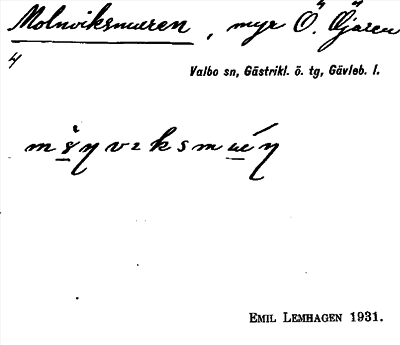 Molnviksmuren, myr Ö. Öjaren
4
Valbo sn, Gästrikl. ö. tg, Gävleb. l.
EMIL LEMHAGEN 1931.